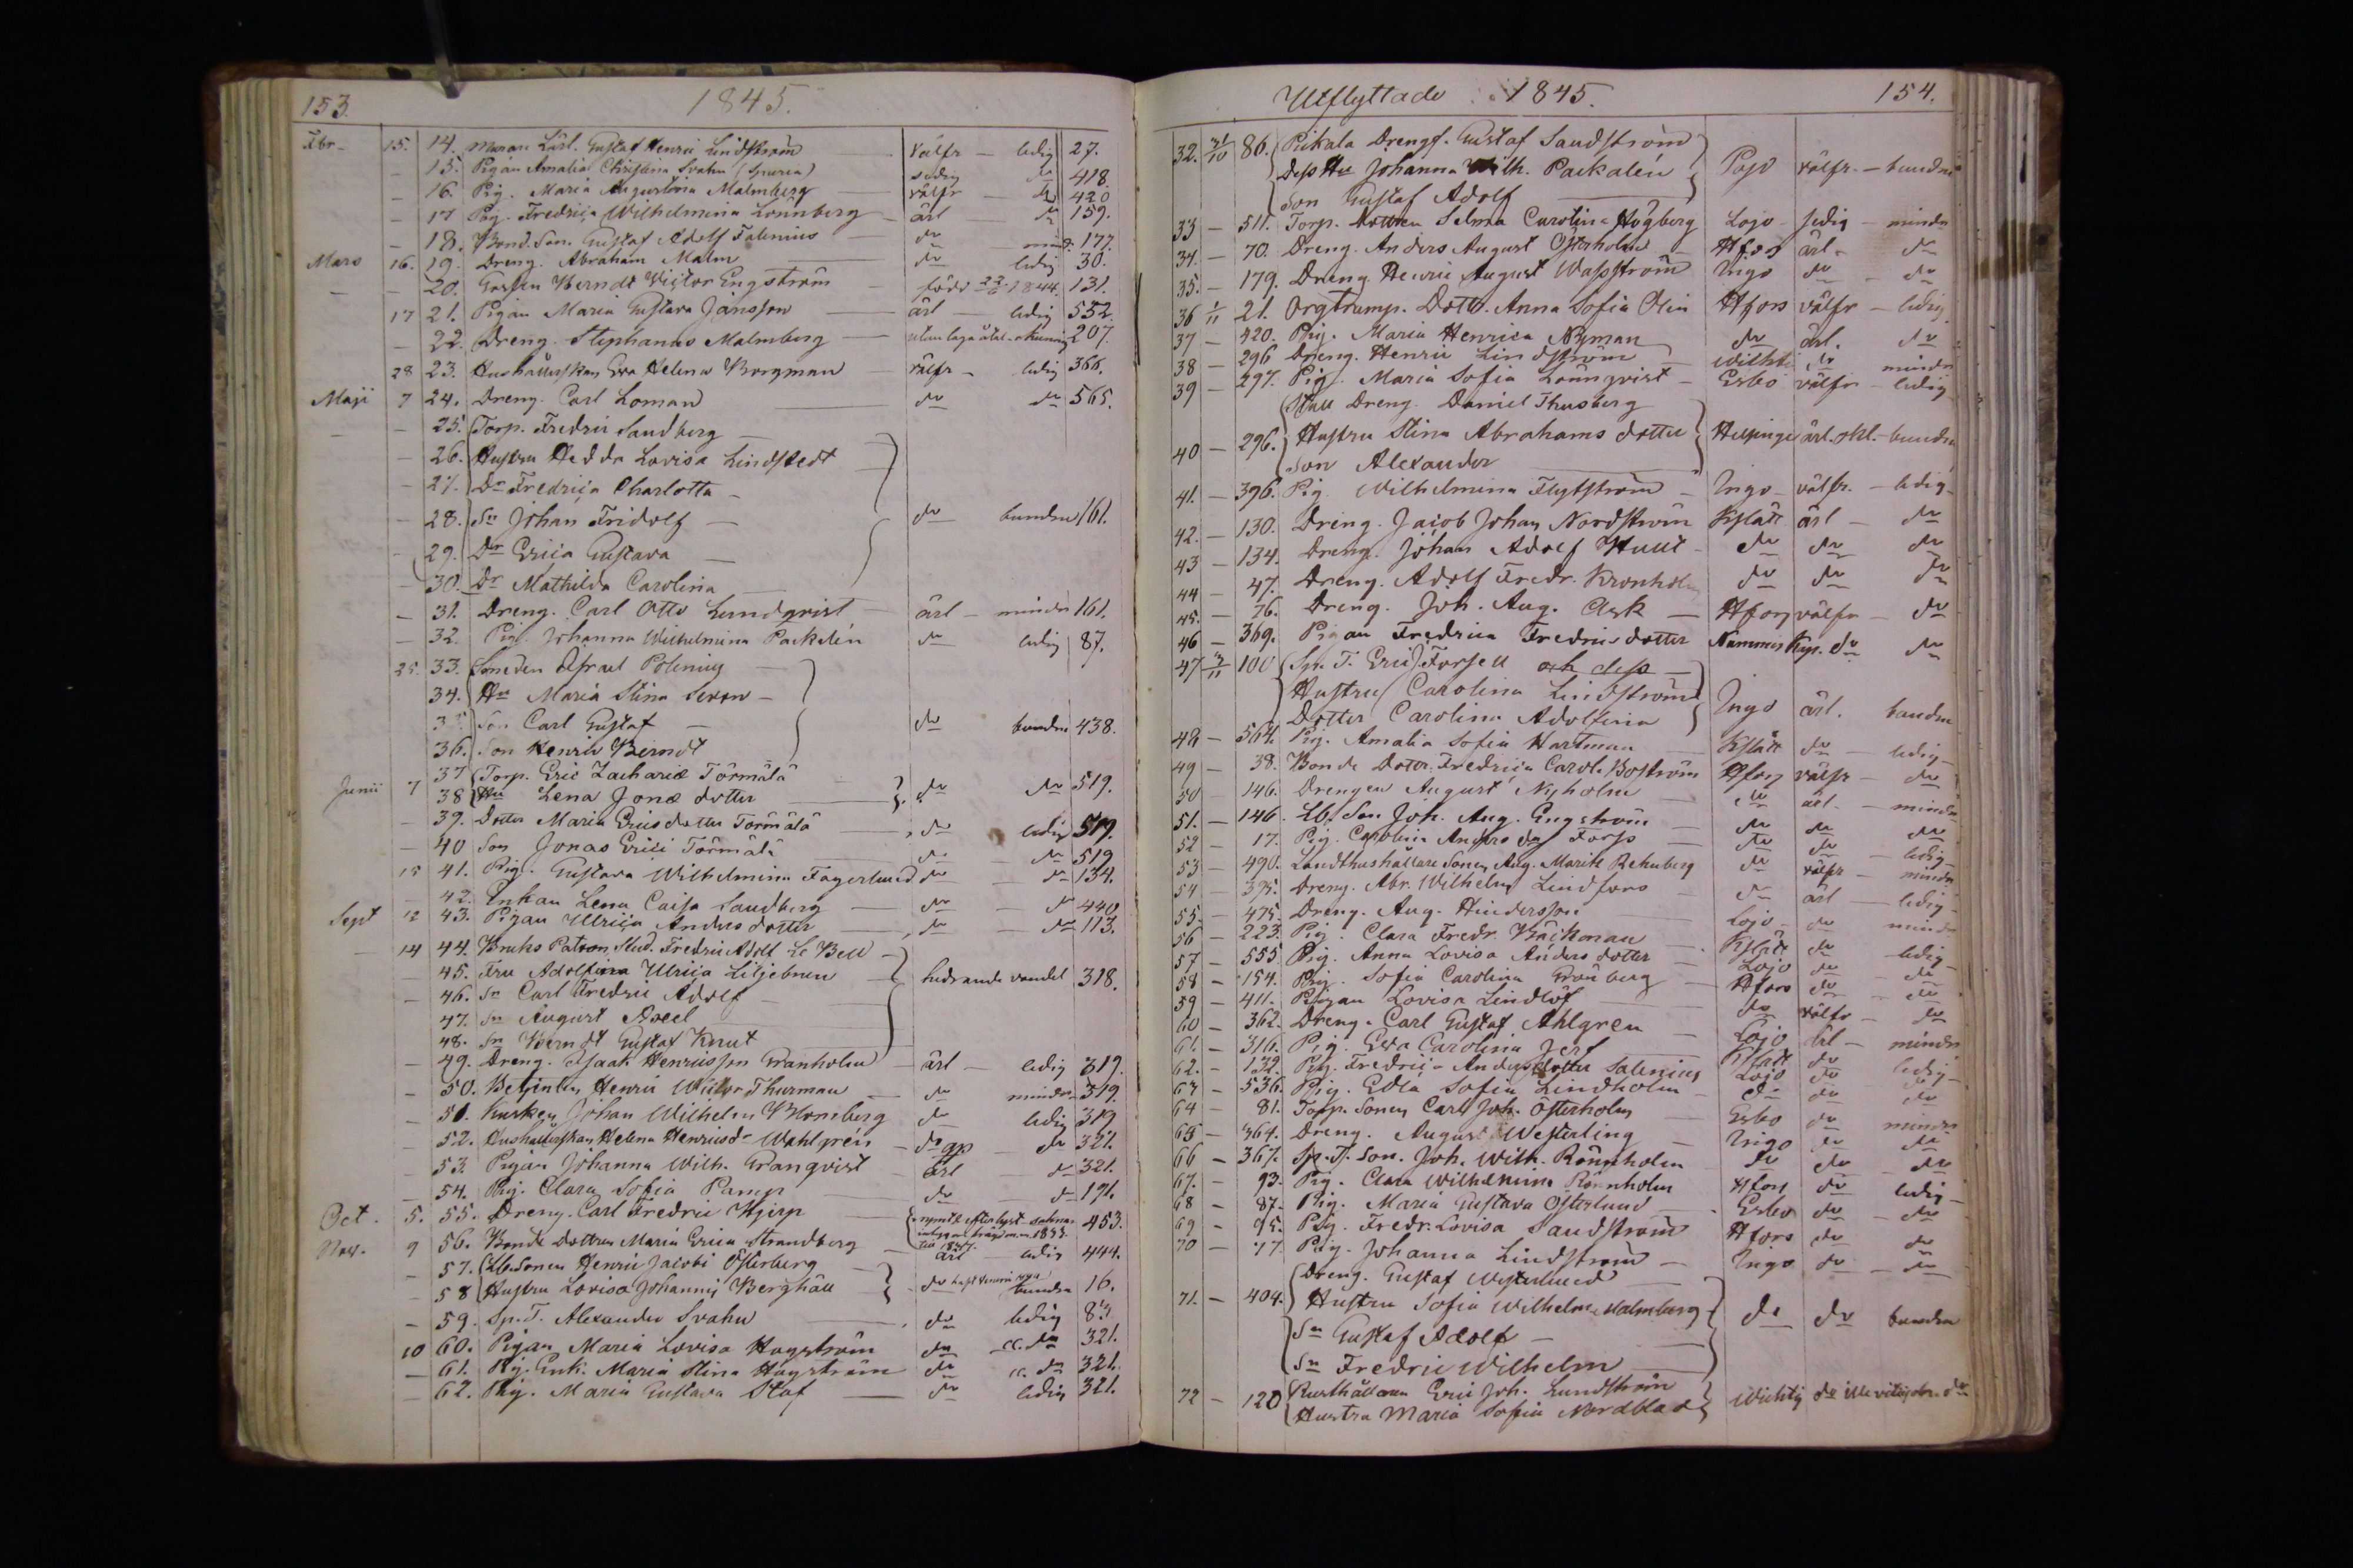 153. 1845.
Febr. 15. 14. Murare Lärl. Gustaf Henric Lindström välfr – ledig 27.
– 15. Pigan Amalia Christina Svahn (Spuria) sedig dr 418.
– 16. Pig. Maria Augustina Malmberg välfr – dr 420
– 17 Pig. Fredrica Wilhelmina Lönnberg ärl dr 159.
– 18. Bond. Son. Gustaf Adolf Falenius dr mind. 177.
Mars 16. 19. Dreng. Abraham Malm dr ledig 30.
– – 20. Gossen Berndt Victor Engström född 1844. 131.
17 21. Pigan Maria Gustava Jansson ärl – ledig 552.
– 22. Dreng. Stephanus Malmberg utan laga åtal – okunnig 207.
28 23. Hushållerskan Eva Helena Borgman välfr – ledig 366.
Maji 7 24. Dreng. Carl Loman dr dr 565.
– – 25. Torp. Fredric Sandberg
– 26. Hustru Hedda Lovisa Lindstedt
– 27. Dr Fredrica Charlotta –
– 28. Sn Johan Fridolf – dr bunden 161.
– 29. Dr Erica Gustava –
– 30. Dr Mathilda Carolina
– 31. Dreng. Carl Otto Lundqvist ärl – mindr 161.
– 32. Pig. Johanna Wilhelmina Packalén dr ledig 87.
25. 33. Smeden Israel Polenius –
34. Hu Maria Stina Sevon –
35. Son Carl Gustaf – dr bunden 438.
36. Son Henric Berndt
Junii 7 37 Torp. Eric Zachariæ Törmälä
38 Hu Lena Jonæ dotter dr dr 519.
– 39. Dotter Maria Ericsdotter Törmälä dr ledig 519.
– 40 Son Jonas Erici Törmälä dr dr 519
15 41. Pig. Gustava Wilhelmina Fagerlund dr – dr 134.
– 42. Enkan Lena Caisa Sandberg dr – dr 440
Sept 12 43. Pigan Ulrica Anders dotter dr – dr 113.
– 14 44. Bruks Patron, Stud. Fredric Adolf Le Bell –
– 45. Fru Adolfina Ulrica Liljebrun hedrande vandel 318.
– 46. Sn Carl Fredric Adolf –
47. Sn August Axel
48. Sn Berndt Gustaf Knut
– 49. Dreng. Isaak Henricsson Granholm – ärl – ledig 319.
– 50. Betjenten Henric Victor Thurman dr mindr 319.
– 51. Kusken Johan Wilhelm Blomberg dr ledig 319
– 52. Hushållerskan Helena Henricsdr Wahlgrén – dr dr 321.
– 53. Pigan Johanna Wilh. Granqvist ärl dr 321.
– 54. Pig. Clara Sofia Pamp dr – dr 191.
Oct. 5. 55. Dreng. Carl Fredric Hjerp 453.
Nov. 9 56. Bonde Dottren Maria Erica Strandberg ärl – ledig 444.
– 57. Lb. Sonen Henric Jacobi Österberg –
– 58 Hustru Lovisa Johannis Berghäll dr bunden 16.
– 59. Sp. T. Alexander Svahn dr ledig 83
10 60. Pigan Maria Lovisa Hagström dr cc. dr 321.
– 61. Pig. Enk. Maria Stina Hagström dr cc. dr 321.
– 62. Pig. Maria Gustava Staf dr ledig 321.
Utflyttade 1845. 154.
32. 31/10 86. Pikala Drengf. Gustaf Sandström
Dess Hu Johanna Wilh. Packalén Pojo välfr. – bundne
Son Gustaf Adolf
33 – 511. Torp. dottren Selma Carolina Högberg Lojo – sedig – mindr
34. – 70. Dreng. Anders August Österholm Hfors ärl – dr
35. – 179. Dreng. Henric August Wasström Ingo dr – dr
36 1/11 21. Orgtramp. Dottr. Anna Sofia Olin Hfors välfr – ledig
37 – 420. Pig. Maria Henrica Nyman dr ärl. dr
38 – 296 Dreng. Henric Lindström – Wichti dr mindr
39 – 297. Pig. Maria Sofia Lönnqvist – Esbo välfr – ledig
Stall Dreng. Daniel Thusberg
40 – 296. Hustru Stina Abrahams dotter Helsinge ärl. – bundn
Son Alexander
41. – 396. Pig. Wilhelmina Flytström – Ingo – välfr. – ledig
42. – 130. Dreng. Jacob Johan Nordström Kslätt ärl – dr
43 – 134. Dreng. Johan Adolf Hult – dr dr dr
44 – 47. Dreng. Adolf Fredr. Kronholm dr dr dr
45. – 76. Dreng. Joh. Aug. Ask – Hfors välfr – dr
46 – 369. Pigan Fredrica Fredrics dotter Nummis Kap. dr dr
47 3/11 100 Sp. T. Eric Forsell och dess –
Hustru Carolina Lindström Ingo ärl. bundn
Dotter Carolina Adolfina
48 – 564. Pig. Amalia Sofia Hartman Kslätt dr – ledig
49 – 38. Bonde Dottr. Fredrica Carol. Boström Hfors välfr – dr
50 146. Drengen August Nyholm – dr ärl. – mindr
51. – 146. Lb. Son Joh. Aug. Engström dr dr dr
52 – 17. Pig. Carolina Anders dr Forss dr dr – ledig
53 – 490. Landthushållare Sonen Aug. Maritz Rehnberg dr välfr – mindr
54 – 375. Dreng. Abr. Wilhelm Lindfors dr ärl – ledig
55 – 475. Dreng. Aug. Hindersson Lojo – dr mindr
56 – 223. Pig. Clara Fredr. Bäckman Kslätt dr ledig
57 – 555 Pig. Anna Lovisa Anders dotter – Lojo dr – dr
58 – 154. Pig. Sofia Carolina Grönberg – Hfors dr – dr
59 – 411. Pigan Lovisa Lindlöf dr välfr – dr
60 – 362. Dreng. Carl Gustaf Ahlgren – Lojo ärl – mindr
61. – 316. Pig. Eva Carolina Jerf Kslätt dr ledig
62. – 132. Pig. Fredrica Anders dotter Salenius Lojo dr dr
63 – 536. Pig. Edla Sofia Lindholm – dr dr dr
64 – 81. Torp. Sonen Carl Joh. Österholm Esbo dr mindr
65 – 364. Dreng. August Westerling – Ingo dr dr
66 – 367. Sp. T. Son. Joh. Wilh. Rönnholm dr dr – dr
67. – 93. Pig. Clara Wilhelmina Rönnholm Hfors dr ledig
68 – 87. Pig. Maria Gustava Österlund Esbo dr – dr
69 – 95. Pig. Fredr. Lovisa Sandström Hfors dr dr
70 – 77 Pig. Johanna Lindström – Ingo dr – dr
Dreng. Gustaf Westerlund
71. – 404. Hustru Sofia Wilhelm. Malmberg dr dr bundna
Sn Gustaf Adolf –
Sn Fredric Wilhelm
72 – 120 Rusthållaren Eric Joh. Lundström
Hustru Maria Sofia Nordblad Wichtis dr